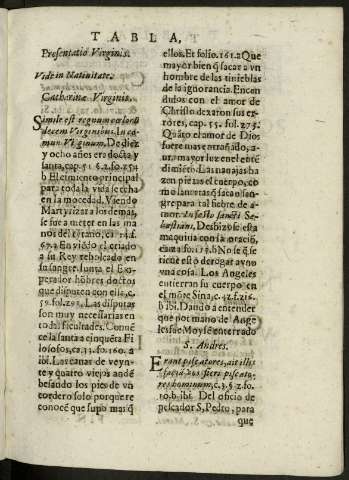 TABLA,
Presentatio Virginis.
Vide in Natiuitate.
Catharina Virginis.
Simile est regnum cælorũ
decem Virginibus. In co
mun Virginum. De diez
y ocho años era docta y
santa, cap. 51. § 2. fo. 254
b El cimiento principal
para toda la vida se echa
en la mocedad. Viendo
Martyrizar a los demas,
se fue a meter en las ma
nos del tirano, ca.
67. a En viédo el criado
a su Rey rebolcado en
su sangre. Iunta el Em
perador hõbres doctos
que disputen con ella, c.
59. fol. 293. Las disputas
son muy necessarias en
todas facultades. Conuẽ
ce la santa a cinquẽta Fi
losofos, ca. 33. fo. 160. a
ibi. Leuanar de veyn-
te y quatro viejos andẽ
besando los pies de vn
cordero solo porque re
conocẽ que supo mas q̃
ellos. Et folio. 161. a Que
mayor bien q̃ sacar a vn
hombre de las tinieblas
de la ignorancia. Encon
tandolos con el amor de
Christo dexaron sus er-
rores, cap. 55. fol. 275.
Quãto el amor de Dios
fuere mas estrañado, a-
urar mayor luz en el entẽ
dimiẽto. Las nauajas ha
zen pieças el cuerpo, co
mo lancetas q̃ saca sñan
gre para tal fiebre de a-
mor. In festo sancti Se-
bastiani. Deshizose esta
maquina con la oracíõ,
en za fo. 179. b No se q̃ se
tiene esto de rogar ayno
vna cosa. Los Angeles
entierran su cuerpo en
el mõte Sina, c. 42. f. 216.
b ibi. Dando a entender
que por mano de Ange
les fue Moysẽ enterrado
S. Andres.
Erant piscatores, ait illis
faciã vos fieri piscato-
res hominum, c. 3. § 2. fo.
10. b. ibi. Del oficio de
pescador S. Pedro, para
que